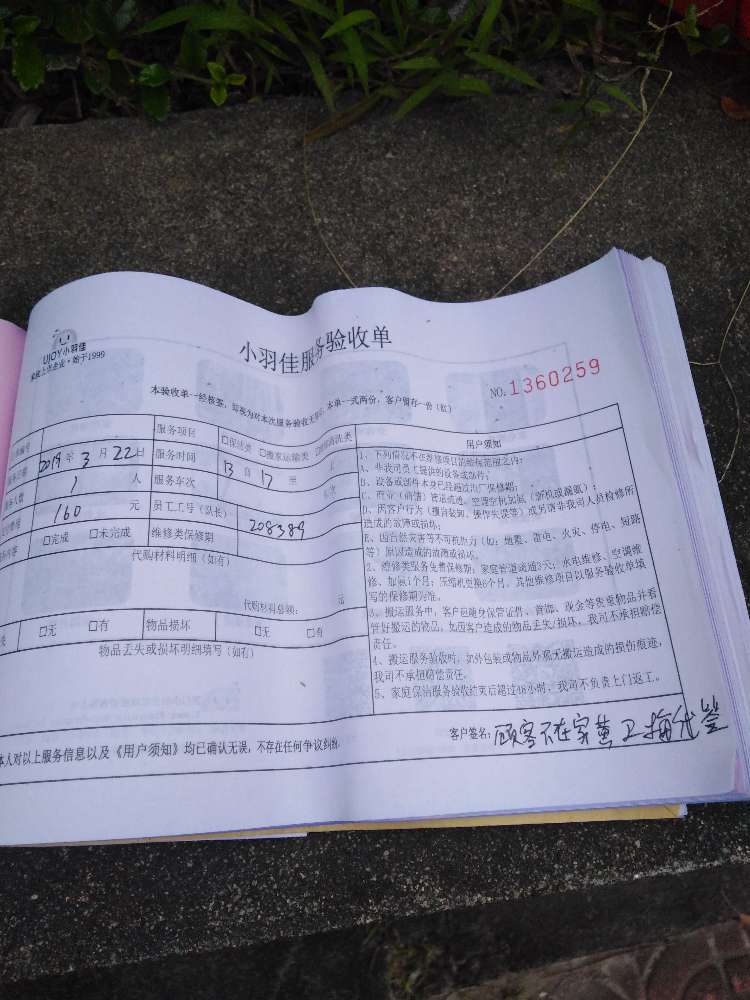 UJOY小羽佳
家政上市企业·始于1999
小羽佳服务验收单
NO.1360259
本验收单一经核签,即视为对本次服务验收无异议,本单一式两份,客户留存一份(红)
服务项目 □保洁类 □搬家运输类
2019年3月22日 服务时间 13 自 17 至
1 人 服务车次
160 元 员工工号(队长) 208389
□完成 □未完成 维修类保修期
代购材料明细(如有)
代购材料总额: 元
□无 □有 物品损坏 □无 □有
物品丢失或损坏明细填写(如有)
用户须知
1、下列情况不在维修项目的质保范围之内:
A、非我司员工提供的设备或部件;
B、设备或部件本身已经超过出厂保修期;
D、因客户行为(擅自装卸、操作失误等)或另请非我司人员检修所
造成的故障或损坏;
E、因自然灾害等不可抗拒力(如:地震、雷电、火灾、停电、短路
等)原因造成的故障或损坏。
2、维修类服务免费保修期:家庭管道疏通3天;水电维修、空调维
修、加氟1个月;压缩机更换6个月,其他维修项目以服务验收单填
写的保修期为准。
3、搬运服务中,客户应随身保管证件、首饰、现金等贵重物品并看
管好搬运的物品,如因客户造成的物品丢失/损坏,我司不承担赔偿
责任。
4、搬运服务验收时,如外包装或物品外观无搬运造成的损伤痕迹,
我司不承担赔偿责任。
5、家庭保洁服务验收结束后超过48小时,我司不负责上门返工。
本人对以上服务信息以及《用户须知》均已确认无误,不存在任何争议纠纷。
客户签名: 顾客不在家黄卫梅代签